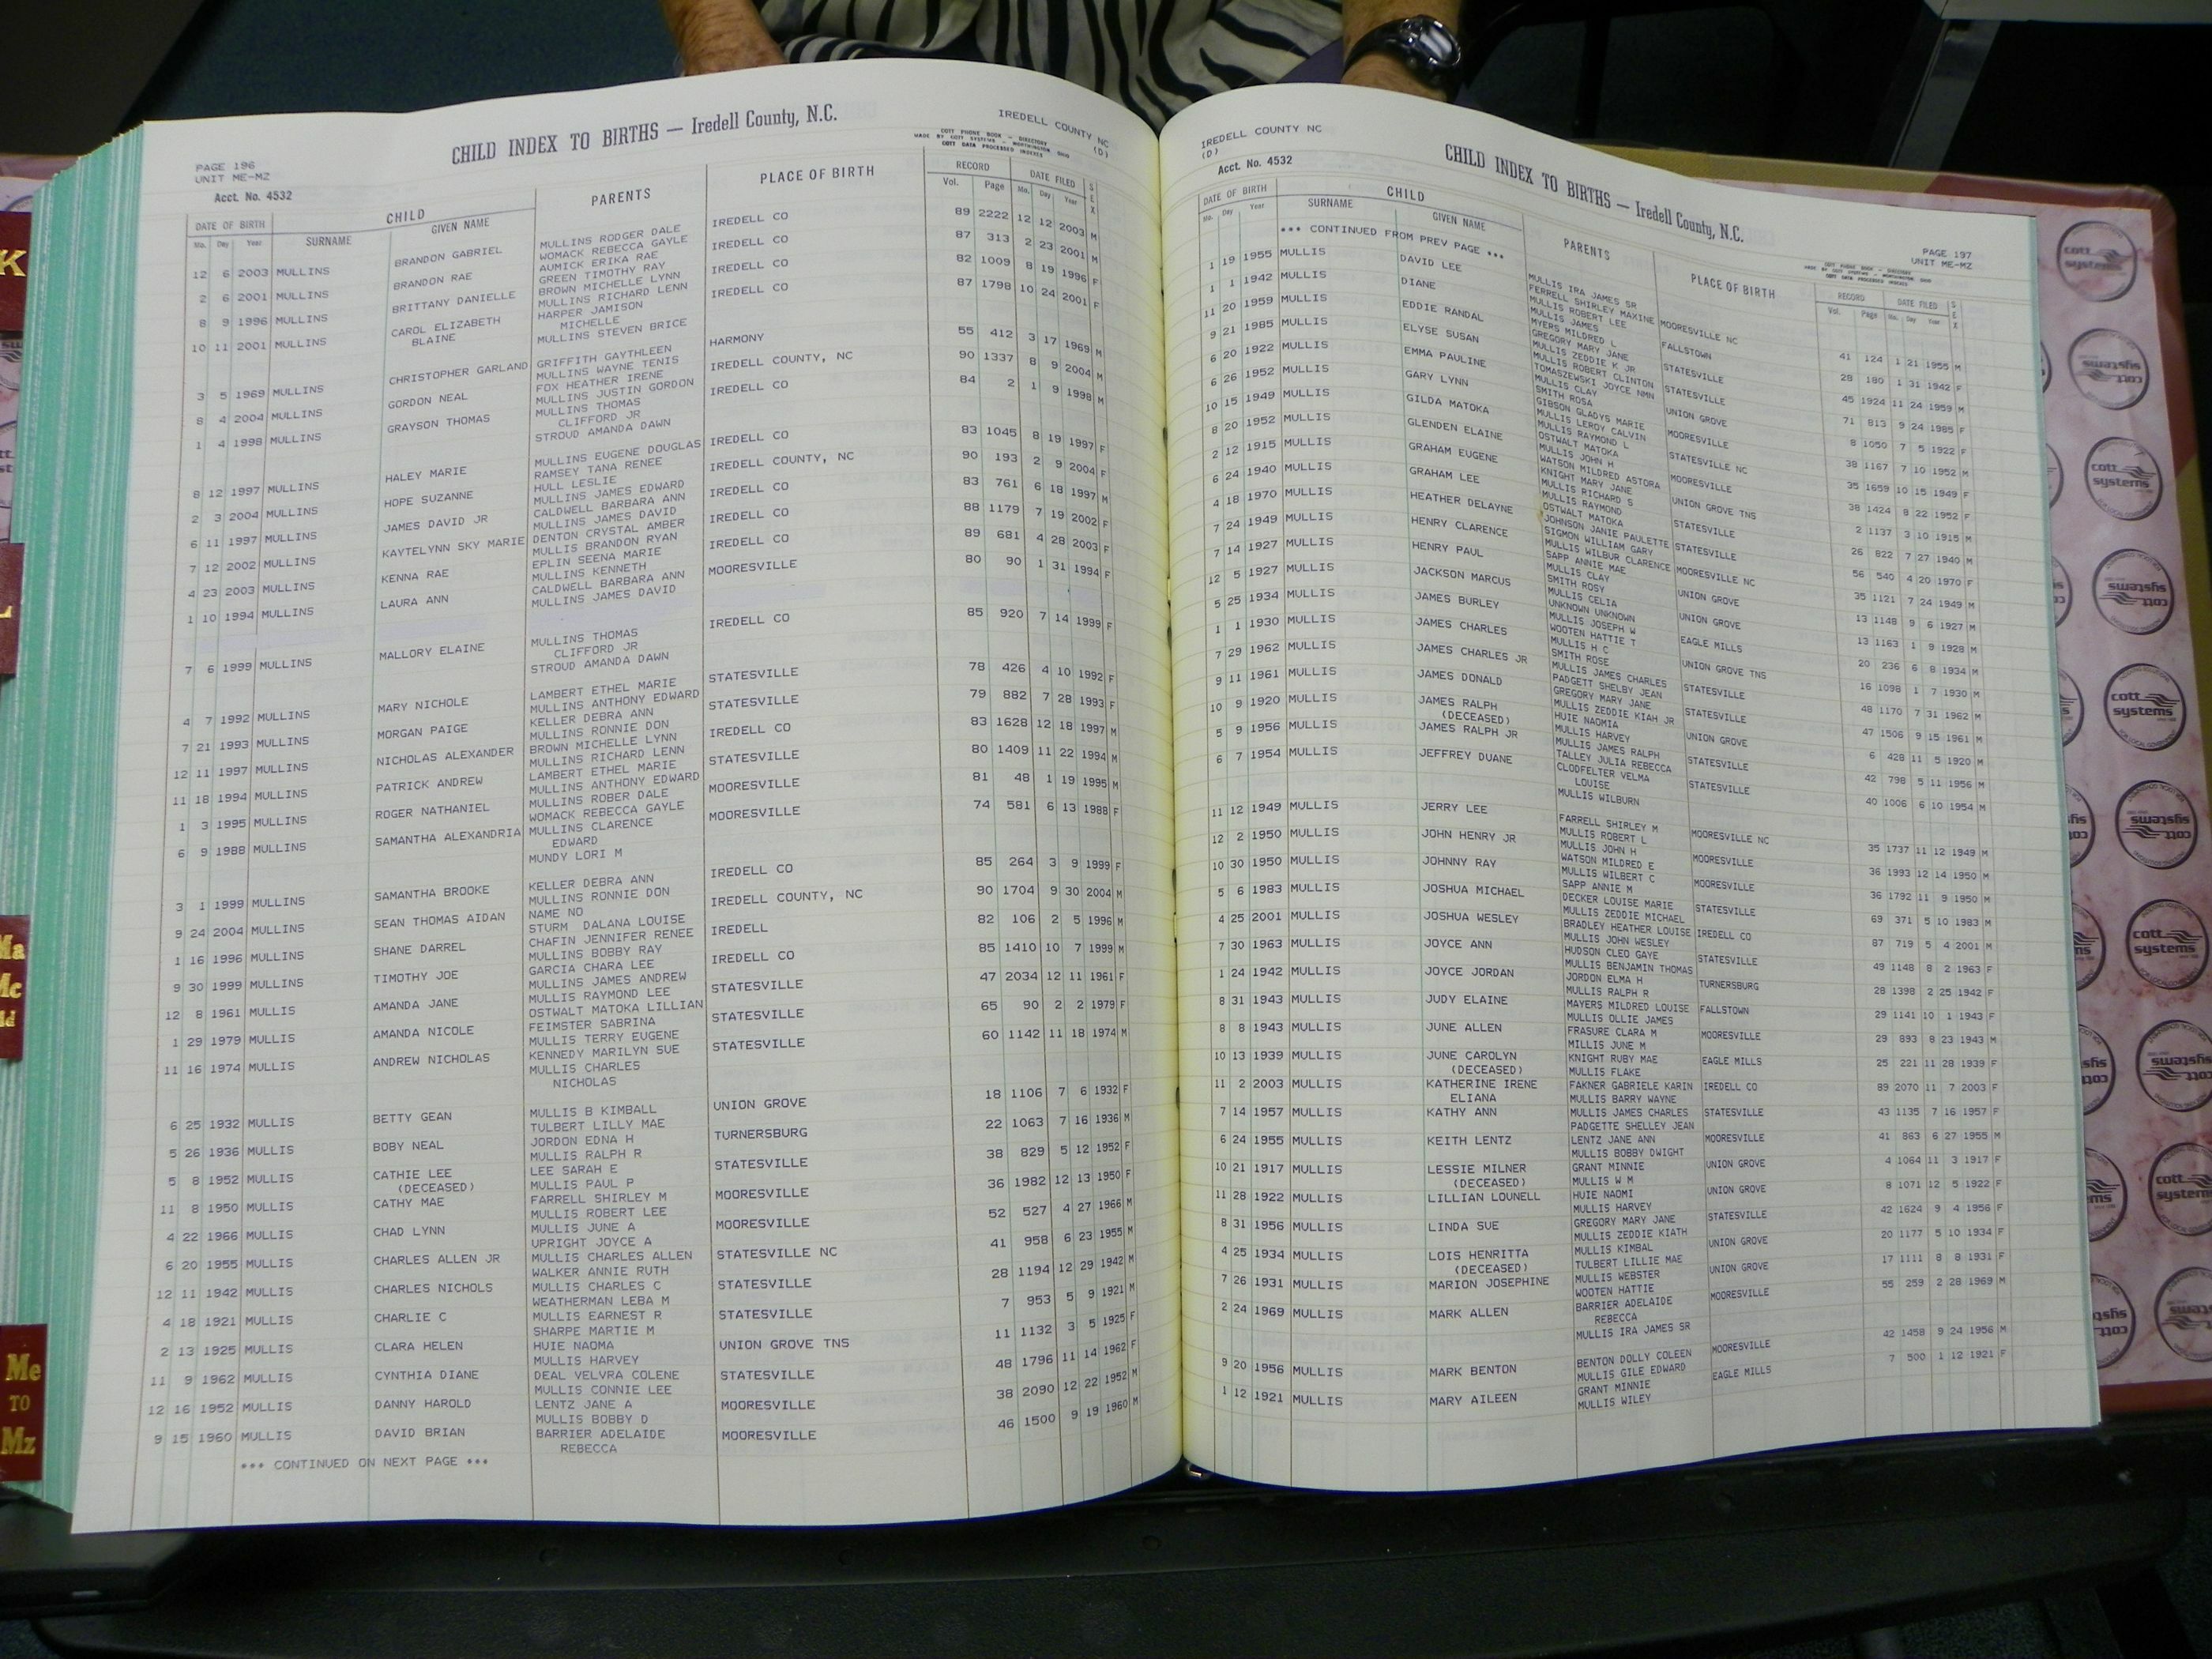 PAGE 196
UNIT ME-MZ
CHILD INDEX TO BIRTHS — Iredell County, N.C.
IREDELL COUNTY NC
(D)
COTT PHONE BOOK - DIRECTORY
MADE BY COTT SYSTEMS - WORTHINGTON OHIO
COTT DATA PROCESSED INDEXES
Acct. No. 4532
DATE OF BIRTH CHILD PARENTS PLACE OF BIRTH RECORD DATE FILED SEX
Mo. Day Year SURNAME GIVEN NAME Vol. Page Mo. Day Year
12 6 2003 MULLINS BRANDON GABRIEL MULLINS RODGER DALE IREDELL CO 89 2222 12 12 2003 M
WOMACK REBECCA GAYLE
2 6 2001 MULLINS BRANDON RAE AUMICK ERIKA RAE IREDELL CO 87 313 2 23 2001 M
GREEN TIMOTHY RAY
8 9 1996 MULLINS BRITTANY DANIELLE BROWN MICHELLE LYNN IREDELL CO 82 1009 8 19 1996 F
MULLINS RICHARD LENN
10 11 2001 MULLINS CAROL ELIZABETH HARPER JAMISON IREDELL CO 87 1798 10 24 2001 F
BLAINE MICHELLE
MULLINS STEVEN BRICE
3 5 1969 MULLINS CHRISTOPHER GARLAND GRIFFITH GAYTHLEEN HARMONY 55 412 3 17 1969 M
MULLINS WAYNE TENIS
8 4 2004 MULLINS GORDON NEAL FOX HEATHER IRENE IREDELL COUNTY, NC 90 1337 8 9 2004 M
MULLINS JUSTIN GORDON
1 4 1998 MULLINS GRAYSON THOMAS MULLINS THOMAS IREDELL CO 84 2 1 9 1998 M
CLIFFORD JR
STROUD AMANDA DAWN
8 12 1997 MULLINS HALEY MARIE MULLINS EUGENE DOUGLAS IREDELL CO 83 1045 8 19 1997 F
RAMSEY TANA RENEE
2 3 2004 MULLINS HOPE SUZANNE HULL LESLIE IREDELL COUNTY, NC 90 193 2 9 2004 F
MULLINS JAMES EDWARD
6 11 1997 MULLINS JAMES DAVID JR CALDWELL BARBARA ANN IREDELL CO 83 761 6 18 1997 M
MULLINS JAMES DAVID
7 12 2002 MULLINS KAYTELYNN SKY MARIE DENTON CRYSTAL AMBER IREDELL CO 88 1179 7 19 2002 F
MULLIS BRANDON RYAN
4 23 2003 MULLINS KENNA RAE EPLIN SEENA MARIE IREDELL CO 89 681 4 28 2003 F
MULLINS KENNETH
1 10 1994 MULLINS LAURA ANN CALDWELL BARBARA ANN MOORESVILLE 80 90 1 31 1994 F
MULLINS JAMES DAVID
7 6 1999 MULLINS MALLORY ELAINE MULLINS THOMAS IREDELL CO 85 920 7 14 1999 F
CLIFFORD JR
STROUD AMANDA DAWN
4 7 1992 MULLINS MARY NICHOLE LAMBERT ETHEL MARIE STATESVILLE 78 426 4 10 1992 F
MULLINS ANTHONY EDWARD
7 21 1993 MULLINS MORGAN PAIGE KELLER DEBRA ANN STATESVILLE 79 882 7 28 1993 F
MULLINS RONNIE DON
12 11 1997 MULLINS NICHOLAS ALEXANDER BROWN MICHELLE LYNN IREDELL CO 83 1628 12 18 1997 M
MULLINS RICHARD LENN
11 18 1994 MULLINS PATRICK ANDREW LAMBERT ETHEL MARIE STATESVILLE 80 1409 11 22 1994 M
MULLINS ANTHONY EDWARD
1 3 1995 MULLINS ROGER NATHANIEL MULLINS ROBER DALE MOORESVILLE 81 48 1 19 1995 M
WOMACK REBECCA GAYLE
6 9 1988 MULLINS SAMANTHA ALEXANDRIA MULLINS CLARENCE MOORESVILLE 74 581 6 13 1988 F
EDWARD
MUNDY LORI M
3 1 1999 MULLINS SAMANTHA BROOKE KELLER DEBRA ANN IREDELL CO 85 264 3 9 1999 F
MULLINS RONNIE DON
9 24 2004 MULLINS SEAN THOMAS AIDAN NAME NO IREDELL COUNTY, NC 90 1704 9 30 2004 M
STURM DALANA LOUISE
1 16 1996 MULLINS SHANE DARREL CHAFIN JENNIFER RENEE IREDELL 82 106 2 5 1996 M
MULLINS BOBBY RAY
9 30 1999 MULLINS TIMOTHY JOE GARCIA CHARA LEE IREDELL CO 85 1410 10 7 1999 M
MULLINS JAMES ANDREW
12 8 1961 MULLIS AMANDA JANE MULLIS RAYMOND LEE STATESVILLE 47 2034 12 11 1961 F
OSTWALT MATOKA LILLIAN
1 29 1979 MULLIS AMANDA NICOLE FEIMSTER SABRINA STATESVILLE 65 90 2 2 1979 F
MULLIS TERRY EUGENE
11 16 1974 MULLIS ANDREW NICHOLAS KENNEDY MARILYN SUE STATESVILLE 60 1142 11 18 1974 M
MULLIS CHARLES
NICHOLAS
6 25 1932 MULLIS BETTY GEAN MULLIS B KIMBALL UNION GROVE 18 1106 7 6 1932 F
TULBERT LILLY MAE
5 26 1936 MULLIS BOBY NEAL JORDON EDNA H TURNERSBURG 22 1063 7 16 1936 M
MULLIS RALPH R
5 8 1952 MULLIS CATHIE LEE LEE SARAH E STATESVILLE 38 829 5 12 1952 F
(DECEASED) MULLIS PAUL P
11 8 1950 MULLIS CATHY MAE FARRELL SHIRLEY M MOORESVILLE 36 1982 12 13 1950 F
MULLIS ROBERT LEE
4 22 1966 MULLIS CHAD LYNN MULLIS JUNE A MOORESVILLE 52 527 4 27 1966 M
UPRIGHT JOYCE A
6 20 1955 MULLIS CHARLES ALLEN JR MULLIS CHARLES ALLEN STATESVILLE NC 41 958 6 23 1955 M
WALKER ANNIE RUTH
12 11 1942 MULLIS CHARLES NICHOLS MULLIS CHARLES C STATESVILLE 28 1194 12 29 1942 M
WEATHERMAN LEBA M
4 18 1921 MULLIS CHARLIE C MULLIS EARNEST R STATESVILLE 7 953 5 9 1921 M
SHARPE MARTIE M
2 13 1925 MULLIS CLARA HELEN HUIE NAOMA UNION GROVE TNS 11 1132 3 5 1925 F
MULLIS HARVEY
11 9 1962 MULLIS CYNTHIA DIANE DEAL VELVRA COLENE STATESVILLE 48 1796 11 14 1962 F
MULLIS CONNIE LEE
12 16 1952 MULLIS DANNY HAROLD LENTZ JANE A MOORESVILLE 38 2090 12 22 1952 M
MULLIS BOBBY D
9 15 1960 MULLIS DAVID BRIAN BARRIER ADELAIDE MOORESVILLE 46 1500 9 19 1960 M
REBECCA
*** CONTINUED ON NEXT PAGE ***
IREDELL COUNTY NC
(D)
Acct. No. 4532
CHILD INDEX TO BIRTHS — Iredell County, N.C.
PAGE 197
UNIT ME-MZ
DATE OF BIRTH CHILD PARENTS PLACE OF BIRTH RECORD DATE FILED SEX
Mo. Day Year SURNAME GIVEN NAME Vol. Page Mo. Day Year
*** CONTINUED FROM PREV PAGE ***
MULLIS IRA JAMES SR
1 19 1955 MULLIS DAVID LEE FERRELL SHIRLEY MAXINE MOORESVILLE NC 41 124 1 21 1955 M
MULLIS ROBERT LEE
1 1 1942 MULLIS DIANE MULLIS JAMES FALLSTOWN 28 180 1 31 1942 F
MYERS MILDRED L
11 20 1959 MULLIS EDDIE RANDAL GREGORY MARY JANE STATESVILLE 45 1924 11 24 1959 M
MULLIS ZEDDIE K JR
9 21 1985 MULLIS ELYSE SUSAN MULLIS ROBERT CLINTON STATESVILLE 71 813 9 24 1985 F
TOMASZEWSKI JOYCE NMN
6 20 1922 MULLIS EMMA PAULINE MULLIS CLAY UNION GROVE 8 1050 7 5 1922 F
SMITH ROSA
6 26 1952 MULLIS GARY LYNN GIBSON GLADYS MARIE MOORESVILLE 38 1167 7 10 1952 M
MULLIS LEROY CALVIN
10 15 1949 MULLIS GILDA MATOKA MULLIS RAYMOND L STATESVILLE NC 35 1659 10 15 1949 F
OSTWALT MATOKA
8 20 1952 MULLIS GLENDEN ELAINE MULLIS JOHN H MOORESVILLE 38 1424 8 22 1952 F
WATSON MILDRED ASTORA
2 12 1915 MULLIS GRAHAM EUGENE KNIGHT MARY JANE UNION GROVE TNS 2 1137 3 10 1915 M
MULLIS RICHARD S
6 24 1940 MULLIS GRAHAM LEE MULLIS RAYMOND STATESVILLE 26 822 7 27 1940 M
OSTWALT MATOKA
4 18 1970 MULLIS HEATHER DELAYNE JOHNSON JANIE PAULETTE STATESVILLE 56 540 4 20 1970 F
SIGMON WILLIAM GARY
7 24 1949 MULLIS HENRY CLARENCE MULLIS WILBUR CLARENCE MOORESVILLE NC 35 1121 7 24 1949 M
SAPP ANNIE MAE
7 14 1927 MULLIS HENRY PAUL MULLIS CLAY UNION GROVE 13 1148 9 6 1927 M
SMITH ROSY
12 5 1927 MULLIS JACKSON MARCUS MULLIS CELIA UNION GROVE 13 1163 1 9 1928 M
UNKNOWN UNKNOWN
5 25 1934 MULLIS JAMES BURLEY MULLIS JOSEPH W EAGLE MILLS 20 236 6 8 1934 M
WOOTEN HATTIE T
1 1 1930 MULLIS JAMES CHARLES MULLIS H C UNION GROVE TNS 16 1098 1 7 1930 M
SMITH ROSE
7 29 1962 MULLIS JAMES CHARLES JR MULLIS JAMES CHARLES STATESVILLE 48 1170 7 31 1962 M
PADGETT SHELBY JEAN
9 11 1961 MULLIS JAMES DONALD GREGORY MARY JANE STATESVILLE 47 1506 9 15 1961 M
MULLIS ZEDDIE KIAH JR
10 9 1920 MULLIS JAMES RALPH HUIE NAOMIA UNION GROVE 6 428 11 5 1920 M
(DECEASED) MULLIS HARVEY
5 9 1956 MULLIS JAMES RALPH JR MULLIS JAMES RALPH STATESVILLE 42 798 5 11 1956 M
TALLEY JULIA REBECCA
6 7 1954 MULLIS JEFFREY DUANE CLODFELTER VELMA STATESVILLE 40 1006 6 10 1954 M
LOUISE
MULLIS WILBURN
11 12 1949 MULLIS JERRY LEE FARRELL SHIRLEY M MOORESVILLE NC 35 1737 11 12 1949 M
MULLIS ROBERT L
12 2 1950 MULLIS JOHN HENRY JR MULLIS JOHN H MOORESVILLE 36 1993 12 14 1950 M
WATSON MILDRED E
10 30 1950 MULLIS JOHNNY RAY MULLIS WILBERT C MOORESVILLE 36 1792 11 9 1950 M
SAPP ANNIE M
5 6 1983 MULLIS JOSHUA MICHAEL DECKER LOUISE MARIE STATESVILLE 69 371 5 10 1983 M
MULLIS ZEDDIE MICHAEL
4 25 2001 MULLIS JOSHUA WESLEY BRADLEY HEATHER LOUISE IREDELL CO 87 719 5 4 2001 M
MULLIS JOHN WESLEY
7 30 1963 MULLIS JOYCE ANN HUDSON CLEO GAYE STATESVILLE 49 1148 8 2 1963 F
MULLIS BENJAMIN THOMAS
1 24 1942 MULLIS JOYCE JORDAN JORDON ELMA H TURNERSBURG 28 1398 2 25 1942 F
MULLIS RALPH R
8 31 1943 MULLIS JUDY ELAINE MAYERS MILDRED LOUISE FALLSTOWN 29 1141 10 1 1943 F
MULLIS OLLIE JAMES
8 8 1943 MULLIS JUNE ALLEN FRASURE CLARA M MOORESVILLE 29 893 8 23 1943 M
MILLIS JUNE M
10 13 1939 MULLIS JUNE CAROLYN KNIGHT RUBY MAE EAGLE MILLS 25 221 11 28 1939 F
(DECEASED) MULLIS FLAKE
11 2 2003 MULLIS KATHERINE IRENE FAKNER GABRIELE KARIN IREDELL CO 89 2070 11 7 2003 F
ELIANA MULLIS BARRY WAYNE
7 14 1957 MULLIS KATHY ANN MULLIS JAMES CHARLES STATESVILLE 43 1135 7 16 1957 F
PADGETTE SHELLEY JEAN
6 24 1955 MULLIS KEITH LENTZ LENTZ JANE ANN MOORESVILLE 41 863 6 27 1955 M
MULLIS BOBBY DWIGHT
10 21 1917 MULLIS LESSIE MILNER GRANT MINNIE UNION GROVE 4 1064 11 3 1917 F
(DECEASED) MULLIS W M
11 28 1922 MULLIS LILLIAN LOUNELL HUIE NAOMI UNION GROVE 8 1071 12 5 1922 F
MULLIS HARVEY
8 31 1956 MULLIS LINDA SUE GREGORY MARY JANE STATESVILLE 42 1624 9 4 1956 F
MULLIS ZEDDIE KIATH
4 25 1934 MULLIS LOIS HENRITTA MULLIS KIMBAL UNION GROVE 20 1177 5 10 1934 F
(DECEASED) TULBERT LILLIE MAE
7 26 1931 MULLIS MARION JOSEPHINE MULLIS WEBSTER UNION GROVE 17 1111 8 8 1931 F
WOOTEN HATTIE
2 24 1969 MULLIS MARK ALLEN BARRIER ADELAIDE MOORESVILLE 55 259 2 28 1969 M
REBECCA
MULLIS IRA JAMES SR
9 20 1956 MULLIS MARK BENTON BENTON DOLLY COLEEN MOORESVILLE 42 1458 9 24 1956 M
MULLIS GILE EDWARD
1 12 1921 MULLIS MARY AILEEN GRANT MINNIE EAGLE MILLS 7 500 1 12 1921 F
MULLIS WILEY
K
L
Ma
Mc
Me
TO
Mz
cott
systems